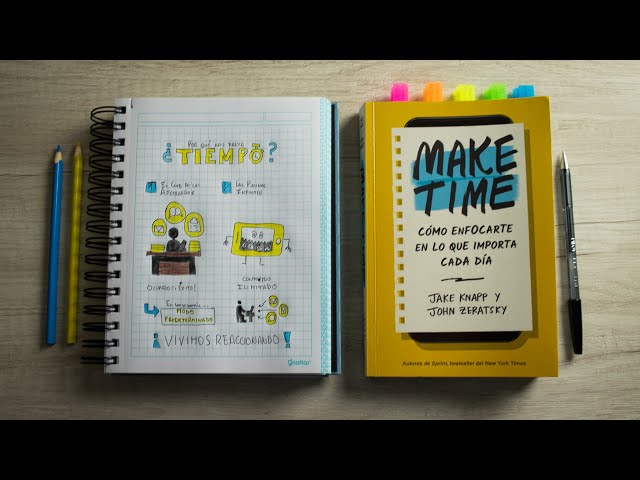 POR QUÉ NOS FALTA
¿TIEMPO?
1 EL CLUB DE LOS
ATAREADOS
2 LAS PISCINAS
INFINITAS
OCUPADO = ÉXITO!
CONTENIDO
ILIMITADO
MODO
PREDETERMINADO
¡VIVIMOS REACCIONANDO!
MAKE
TIME
CÓMO ENFOCARTE
EN LO QUE IMPORTA
CADA DÍA
JAKE KNAPP Y
JOHN ZERATSKY
Autores de Sprint, bestseller del New York Times